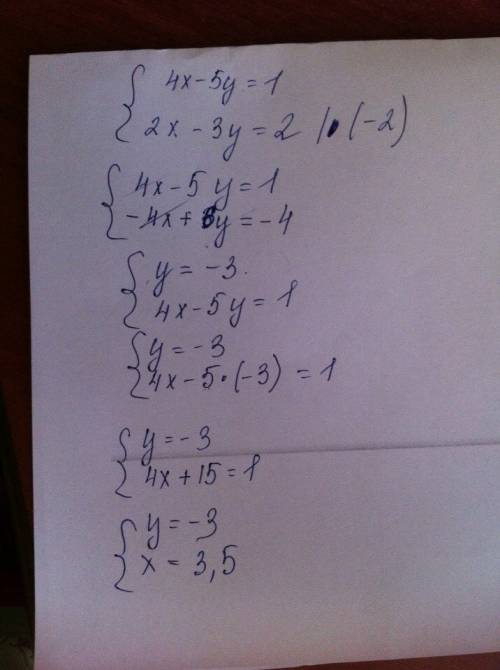 4x-5y=1
2x-3y=2 |•(-2)
4x-5y=1
-4x+6y=-4
y=-3.
4x-5y=1
y=-3
4x-5•(-3)=1
y=-3
4x+15=1
y=-3
x=3,5